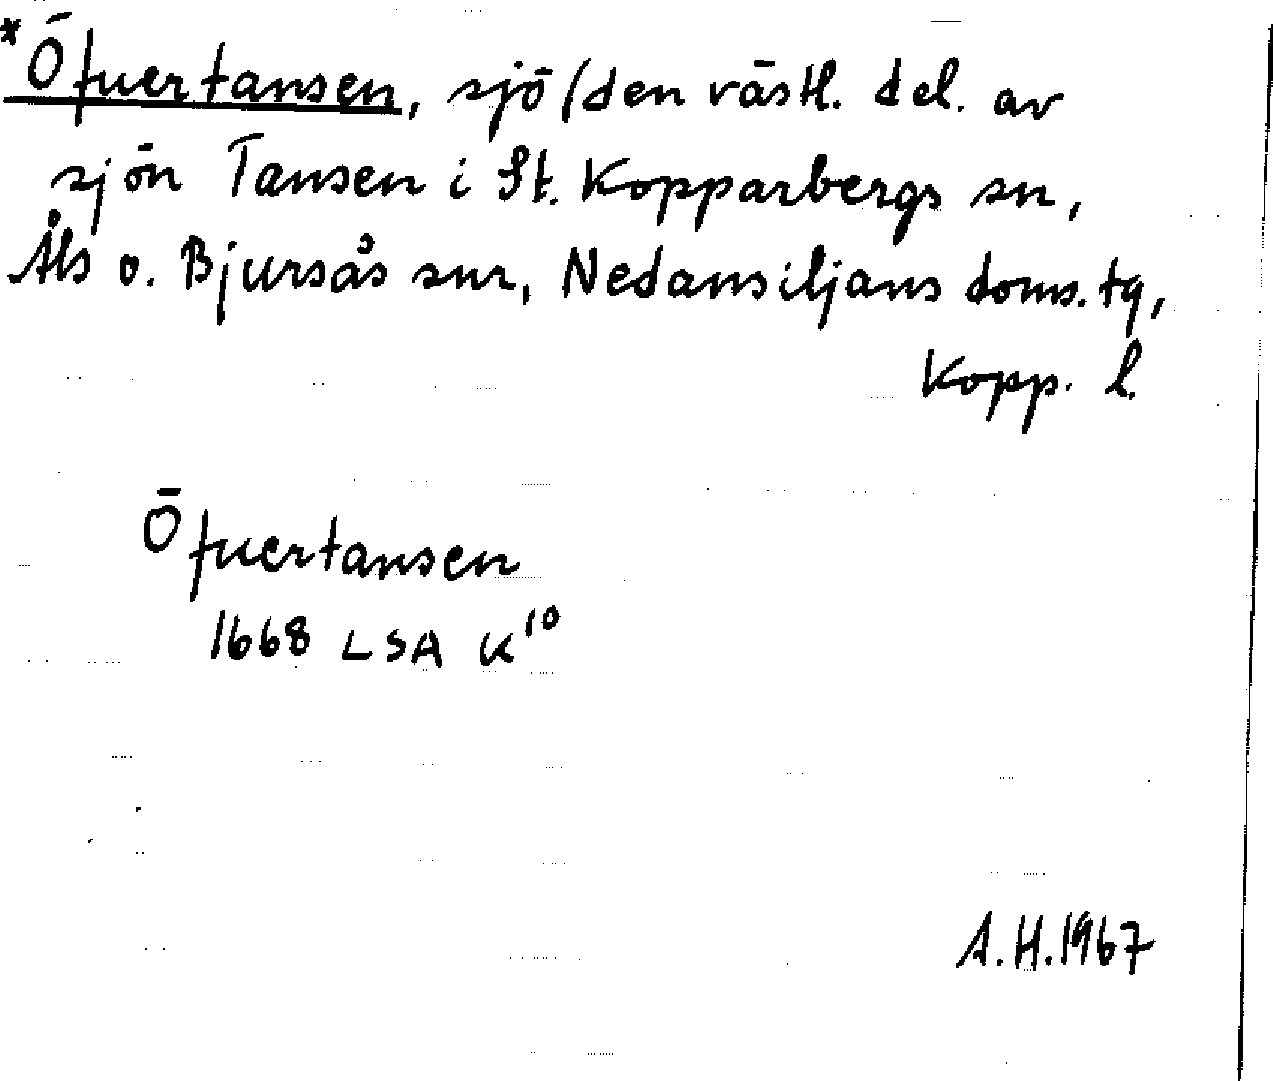 *Öfuertansen, sjö (den västl. del. av
sjön Tansen i St. Kopparbergs sn,
Åls o. Bjursås snr, Nedansiljans doms. tg,
Kopp. l.
Öfuertansen
1668 LSA K¹⁰
A.H. 1967